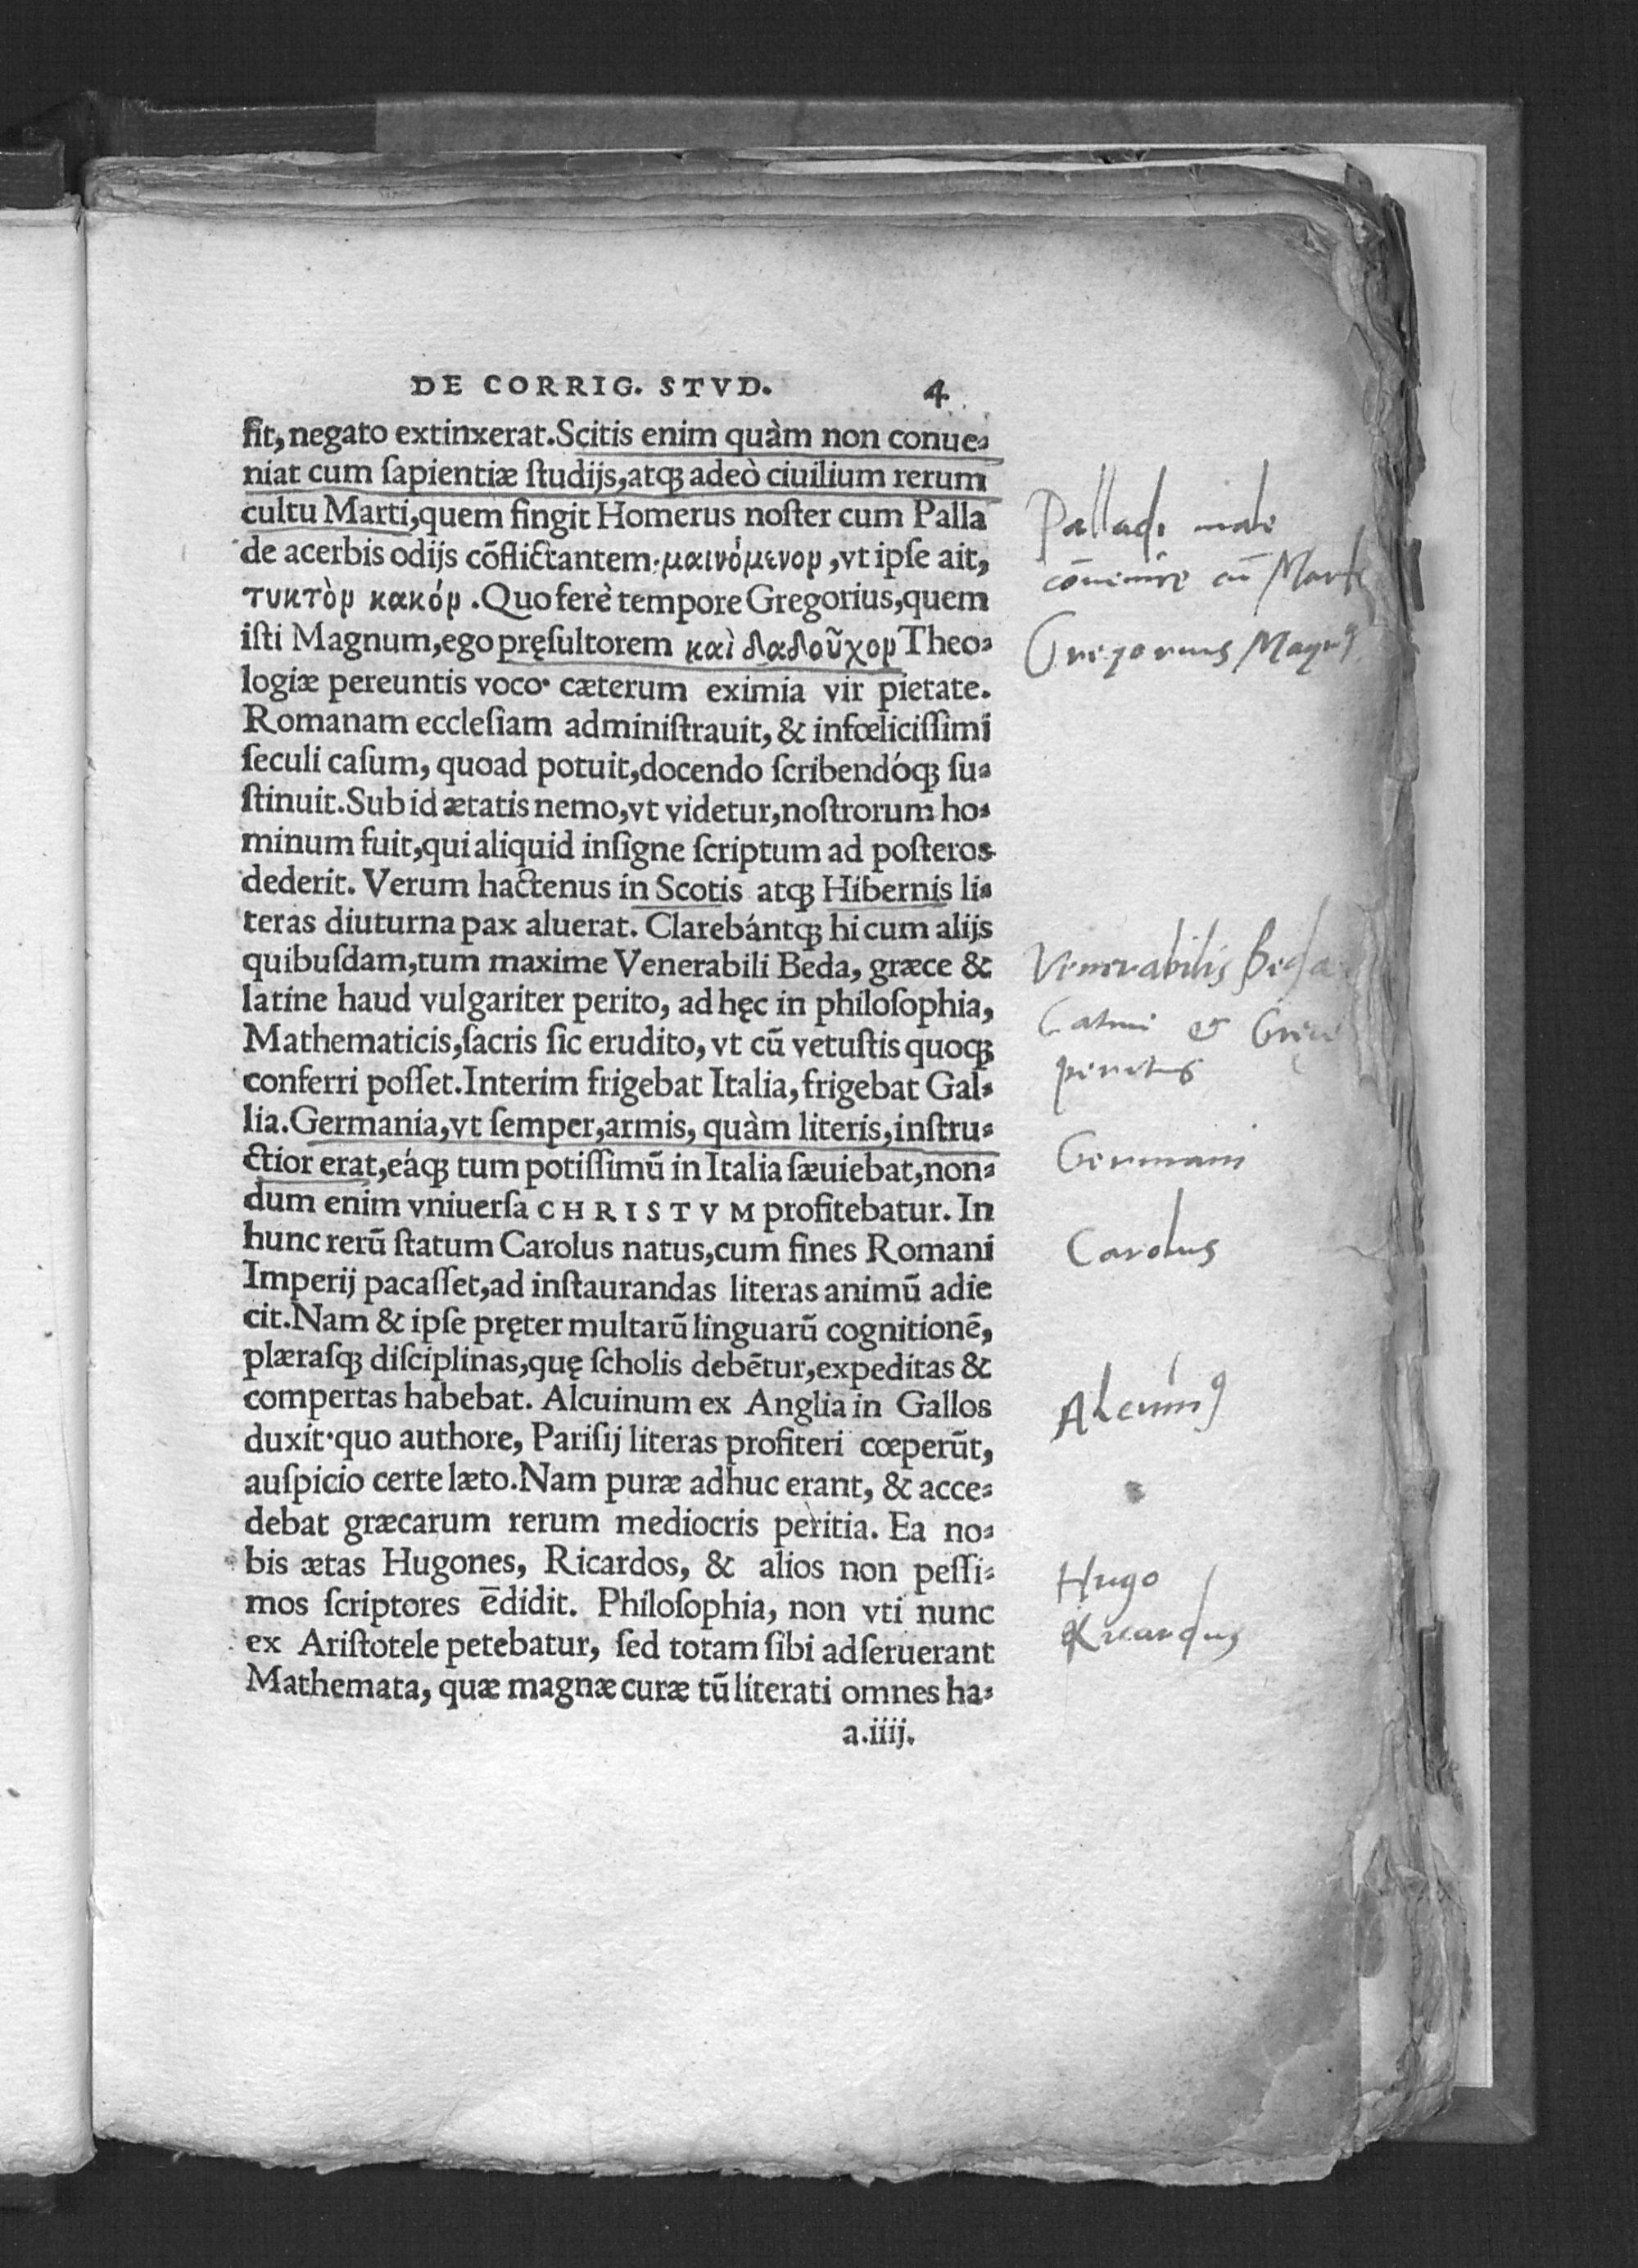 DE CORRIG. STVD. 4
ſit, negato extinxerat. Scitis enim quàm non conue-
niat cum ſapientiæ ſtudijs, atq; adeò ciuilium rerum
cultu Marti, quem fingit Homerus noſter cum Palla
de acerbis odijs cōflictantem· μαινόμενον, vt ipſe ait,
τυκτὸν κακόν. Quo ferè tempore Gregorius, quem
iſti Magnum, ego pręſultorem καὶ δαδοῦχον Theo-
logiæ pereuntis voco· cæterum eximia vir pietate.
Romanam eccleſiam adminiſtrauit, & infœliciſſimi
ſeculi caſum, quoad potuit, docendo ſcribendóq; ſu-
ſtinuit. Sub id ætatis nemo, vt videtur, noſtrorum ho-
minum fuit, qui aliquid inſigne ſcriptum ad poſteros
dederit. Verum hactenus in Scotis atq; Hibernis li-
teras diuturna pax aluerat. Clarebántq; hi cum alijs
quibuſdam, tum maxime Venerabili Beda, græce &
latine haud vulgariter perito, ad hęc in philoſophia,
Mathematicis, ſacris ſic erudito, vt cū vetuſtis quoq;
conferri poſſet. Interim frigebat Italia, frigebat Gal-
lia. Germania, vt ſemper, armis, quàm literis, inſtru-
ctior erat, eáq; tum potiſſimū in Italia ſæuiebat, non-
dum enim vniuerſa CHRISTVM profitebatur. In
hunc rerū ſtatum Carolus natus, cum fines Romani
Imperij pacaſſet, ad inſtaurandas literas animū adie
cit. Nam & ipſe pręter multarū linguarū cognitionē,
plæraſq; diſciplinas, quę ſcholis debētur, expeditas &
compertas habebat. Alcuinum ex Anglia in Gallos
duxit· quo authore, Pariſij literas profiteri cœperūt,
auſpicio certe læto. Nam puræ adhuc erant, & acce-
debat græcarum rerum mediocris peritia. Ea no-
bis ætas Hugones, Ricardos, & alios non peſſi-
mos ſcriptores ēdidit. Philoſophia, non vti nunc
ex Ariſtotele petebatur, ſed totam ſibi adſeruerant
Mathemata, quæ magnæ curæ tū literati omnes ha-
a.iiij.
Palladi male
cōuenire cū Marte
Gregorius Magnꝰ
Venerabilis Beda
Latini et Greci
peritus
Germani
Carolus
Alcuinꝰ
Hugo
Ricardus